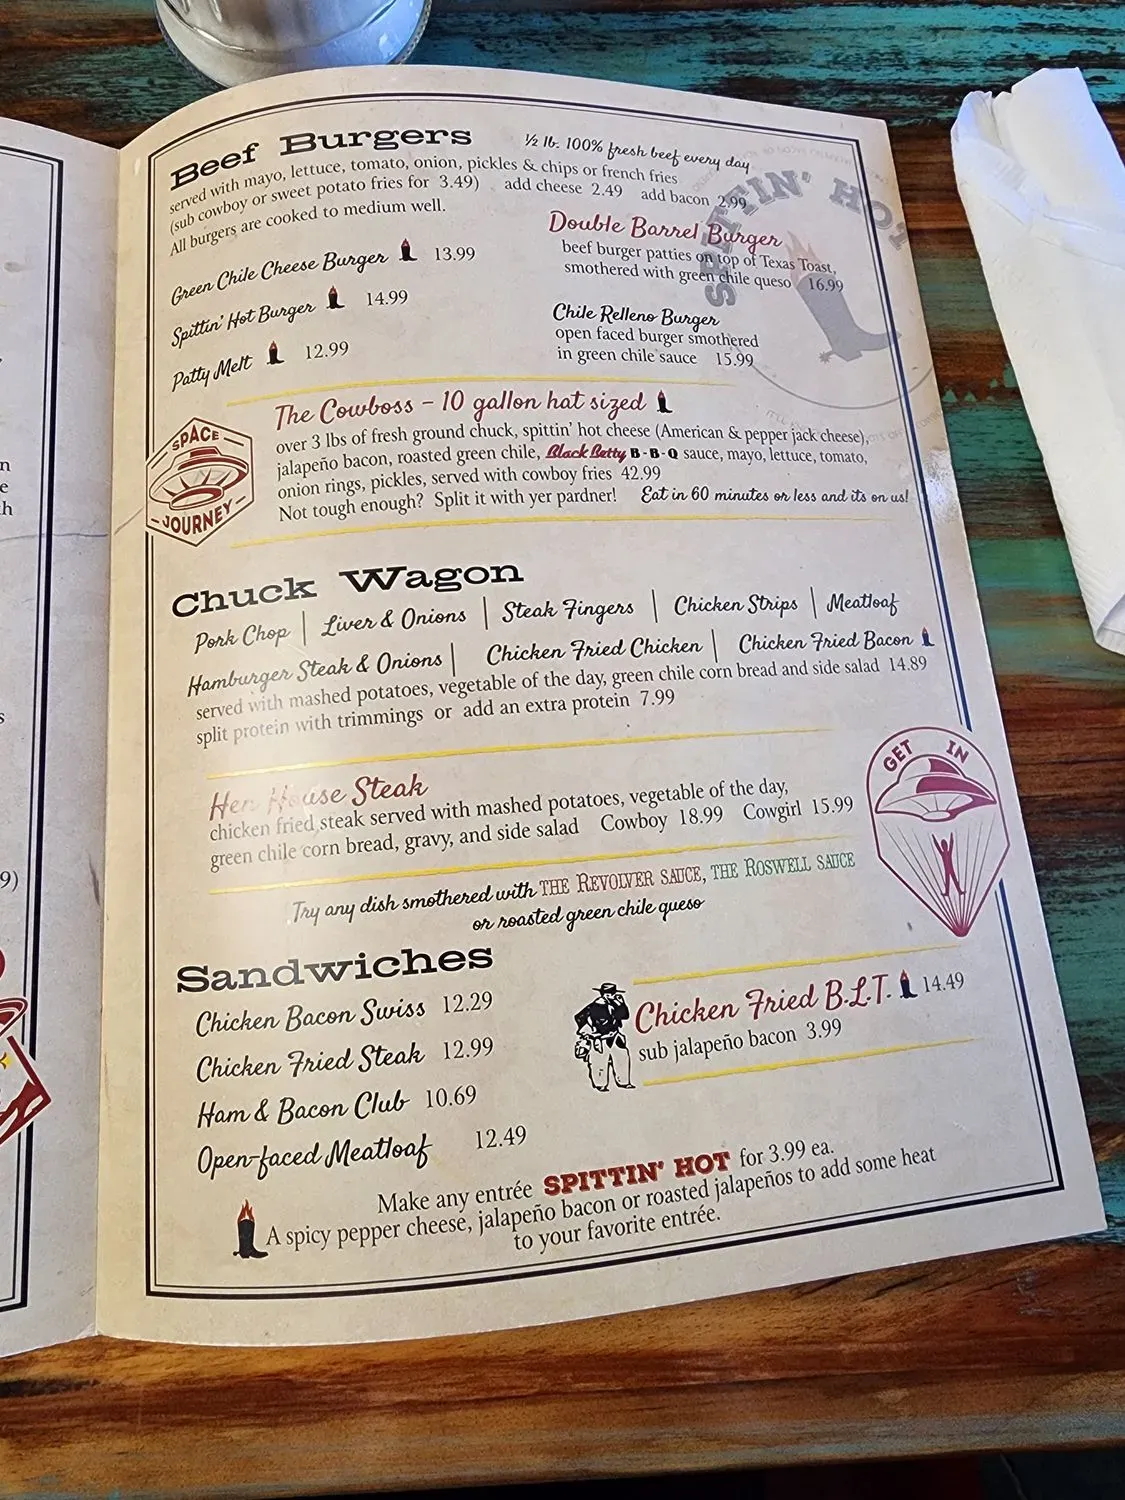 Beef Burgers
½ lb. 100% fresh beef every day
served with mayo, lettuce, tomato, onion, pickles & chips or french fries
(sub cowboy or sweet potato fries for 3.49) add cheese 2.49 add bacon 2.99
All burgers are cooked to medium well.
Green Chile Cheese Burger 13.99
Spittin' Hot Burger 14.99
Patty Melt 12.99
Double Barrel Burger
beef burger patties on top of Texas Toast,
smothered with green chile queso 16.99
Chile Relleno Burger
open faced burger smothered
in green chile sauce 15.99
SPITTIN' HOT
SPACE
JOURNEY
The Cowboss – 10 gallon hat sized
over 3 lbs of fresh ground chuck, spittin' hot cheese (American & pepper jack cheese),
jalapeño bacon, roasted green chile, Black Betty B-B-Q sauce, mayo, lettuce, tomato,
onion rings, pickles, served with cowboy fries 42.99
Not tough enough? Split it with yer pardner! Eat in 60 minutes or less and its on us!
Chuck Wagon
Pork Chop | Liver & Onions | Steak Fingers | Chicken Strips | Meatloaf
Hamburger Steak & Onions | Chicken Fried Chicken | Chicken Fried Bacon
served with mashed potatoes, vegetable of the day, green chile corn bread and side salad 14.89
split protein with trimmings or add an extra protein 7.99
Hen House Steak
chicken fried steak served with mashed potatoes, vegetable of the day,
green chile corn bread, gravy, and side salad Cowboy 18.99 Cowgirl 15.99
GET IN
Try any dish smothered with THE REVOLVER SAUCE, THE ROSWELL SAUCE
or roasted green chile queso
Sandwiches
Chicken Bacon Swiss 12.29
Chicken Fried Steak 12.99
Ham & Bacon Club 10.69
Open-faced Meatloaf 12.49
Chicken Fried B.L.T. 14.49
sub jalapeño bacon 3.99
Make any entrée SPITTIN' HOT for 3.99 ea.
A spicy pepper cheese, jalapeño bacon or roasted jalapeños to add some heat
to your favorite entrée.